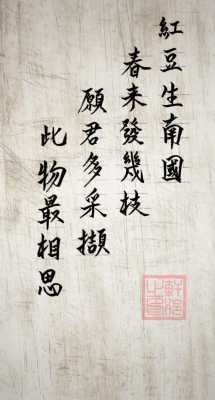 紅豆生南國
春来發幾枝
願君多采擷
此物最相思